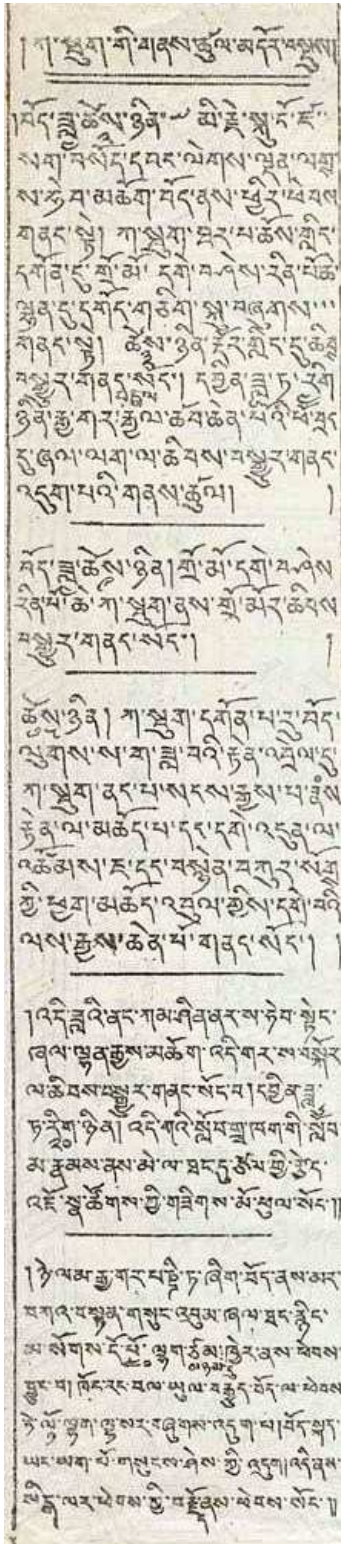 ། ཀ་སྦུག་གི་གནས་ཚུལ་མདོར་བསྡུས།
།བོད་ཟླ་ཚེས་ ཉིན་ མི་རྗེ་སྐུ་ངོ་
ས་ཧེབ་མཆོག་བོད་ནས་ཕྱིར་ཕེབས
གནང་སྟེ། ཀ་སྦུག་ཐར་པ་ཆོས་གླིང་
དགོན་དུ་གྲོ་མོ་ དགེ་བཤེས་རིན་པོ་ཆེ་
ལྷན་དུ་དགོང་གཅིག་ བཞུགས་
གནང་སྟེ། ཉིན་རྡོར་གླིང་དུ་ཆིབ
བསྒྱུར་གནང་སོང་། དབྱིན་ཟླ་
ཉིན་རྒྱ་གར་རྒྱལ་ཚབ་ཆེན་པོའི་ཕོ་བྲང
དུ་ཞལ་ལག་ལ་ཆིབས་བསྒྱུར་གནང་
འདུག་པའི་གནས་ཚུལ། །
བོད་ཟླ་ ཉིན། གྲོ་མོ་དགེ་བཤེས
རིན་པོ་ཆེ་ཀ་སྦུག་ནས་གྲོ་མོར་ཆིབས
བསྒྱུར་གནང་སོང་། །
ཉིན། ཀ་སྦུག་དགོན་པ་རུ་བོད་
ལུགས་ས་ག་ཟླ་བའི་རྟེན་འབྲེལ་དུ་
ཀ་སྦུག་ནང་པ་སངས་རྒྱས་པ་རྣམས
རྟེན་ལ་མཆོད་པ་དང་དགེ་འདུན་ལ་
འཚོམས་ཇ་དང་བསྙེན་བཀུར་སོགས
ཀྱི་ཕྱག་མཆོད་འབུལ་གྱིས་དགེ་བའི
ལས་རྒྱས་ཆེན་པོ་གནང་སོང་། །
།འདི་ཟླའི་ནང་ཀམ་ཤིན་ནར་ས་ཧེབ་སྟེང་
ཞལ་ལྷན་རྒྱས་མཆོག་འདི་གར་ས་བསྐོར
ལ་ཆིབས་བསྒྱུར་གནང་སོང་བ། དབྱིན་ཟླ་
ཉིན། འདི་གའི་སློབ་གྲྭ་ཁག་གི་སློབ
མ་རྣམས་ནས་མེ་ལ་ཐང་དུ་རྩལ་གྱི་རྩེད་
འཇོ་སྣ་ཚོགས་ཀྱི་གཟིགས་མོ་ཕུལ་སོང་།།
།ཉེ་ལམ་རྒྱ་གར་པནྜི་ཏ་ཞིག་བོད་ནས་མར་
བཀའ་བསྟན་གསུང་འབུམ་ཞལ་ཐང་རྙིང་
མ་སོགས་དོ་པོ་ ཁྱེར་ནས་ཕེབས
བྱུང་བ། ཁོང་རང་བལ་ཡུལ་བརྒྱུད་བོད་ལ་ཕེབས
ཏེ་ལོ་ལྷག་ལྷ་སར་བཞུགས་འདུག་པ། བོད་སྐད་
ཡང་ཡག་པོ་གསུངས་ཤེས་ཀྱི་འདུག། འདི་ནས་
ལར་ཕེབས་ཀྱི་ ཕེབས་སོང་།།